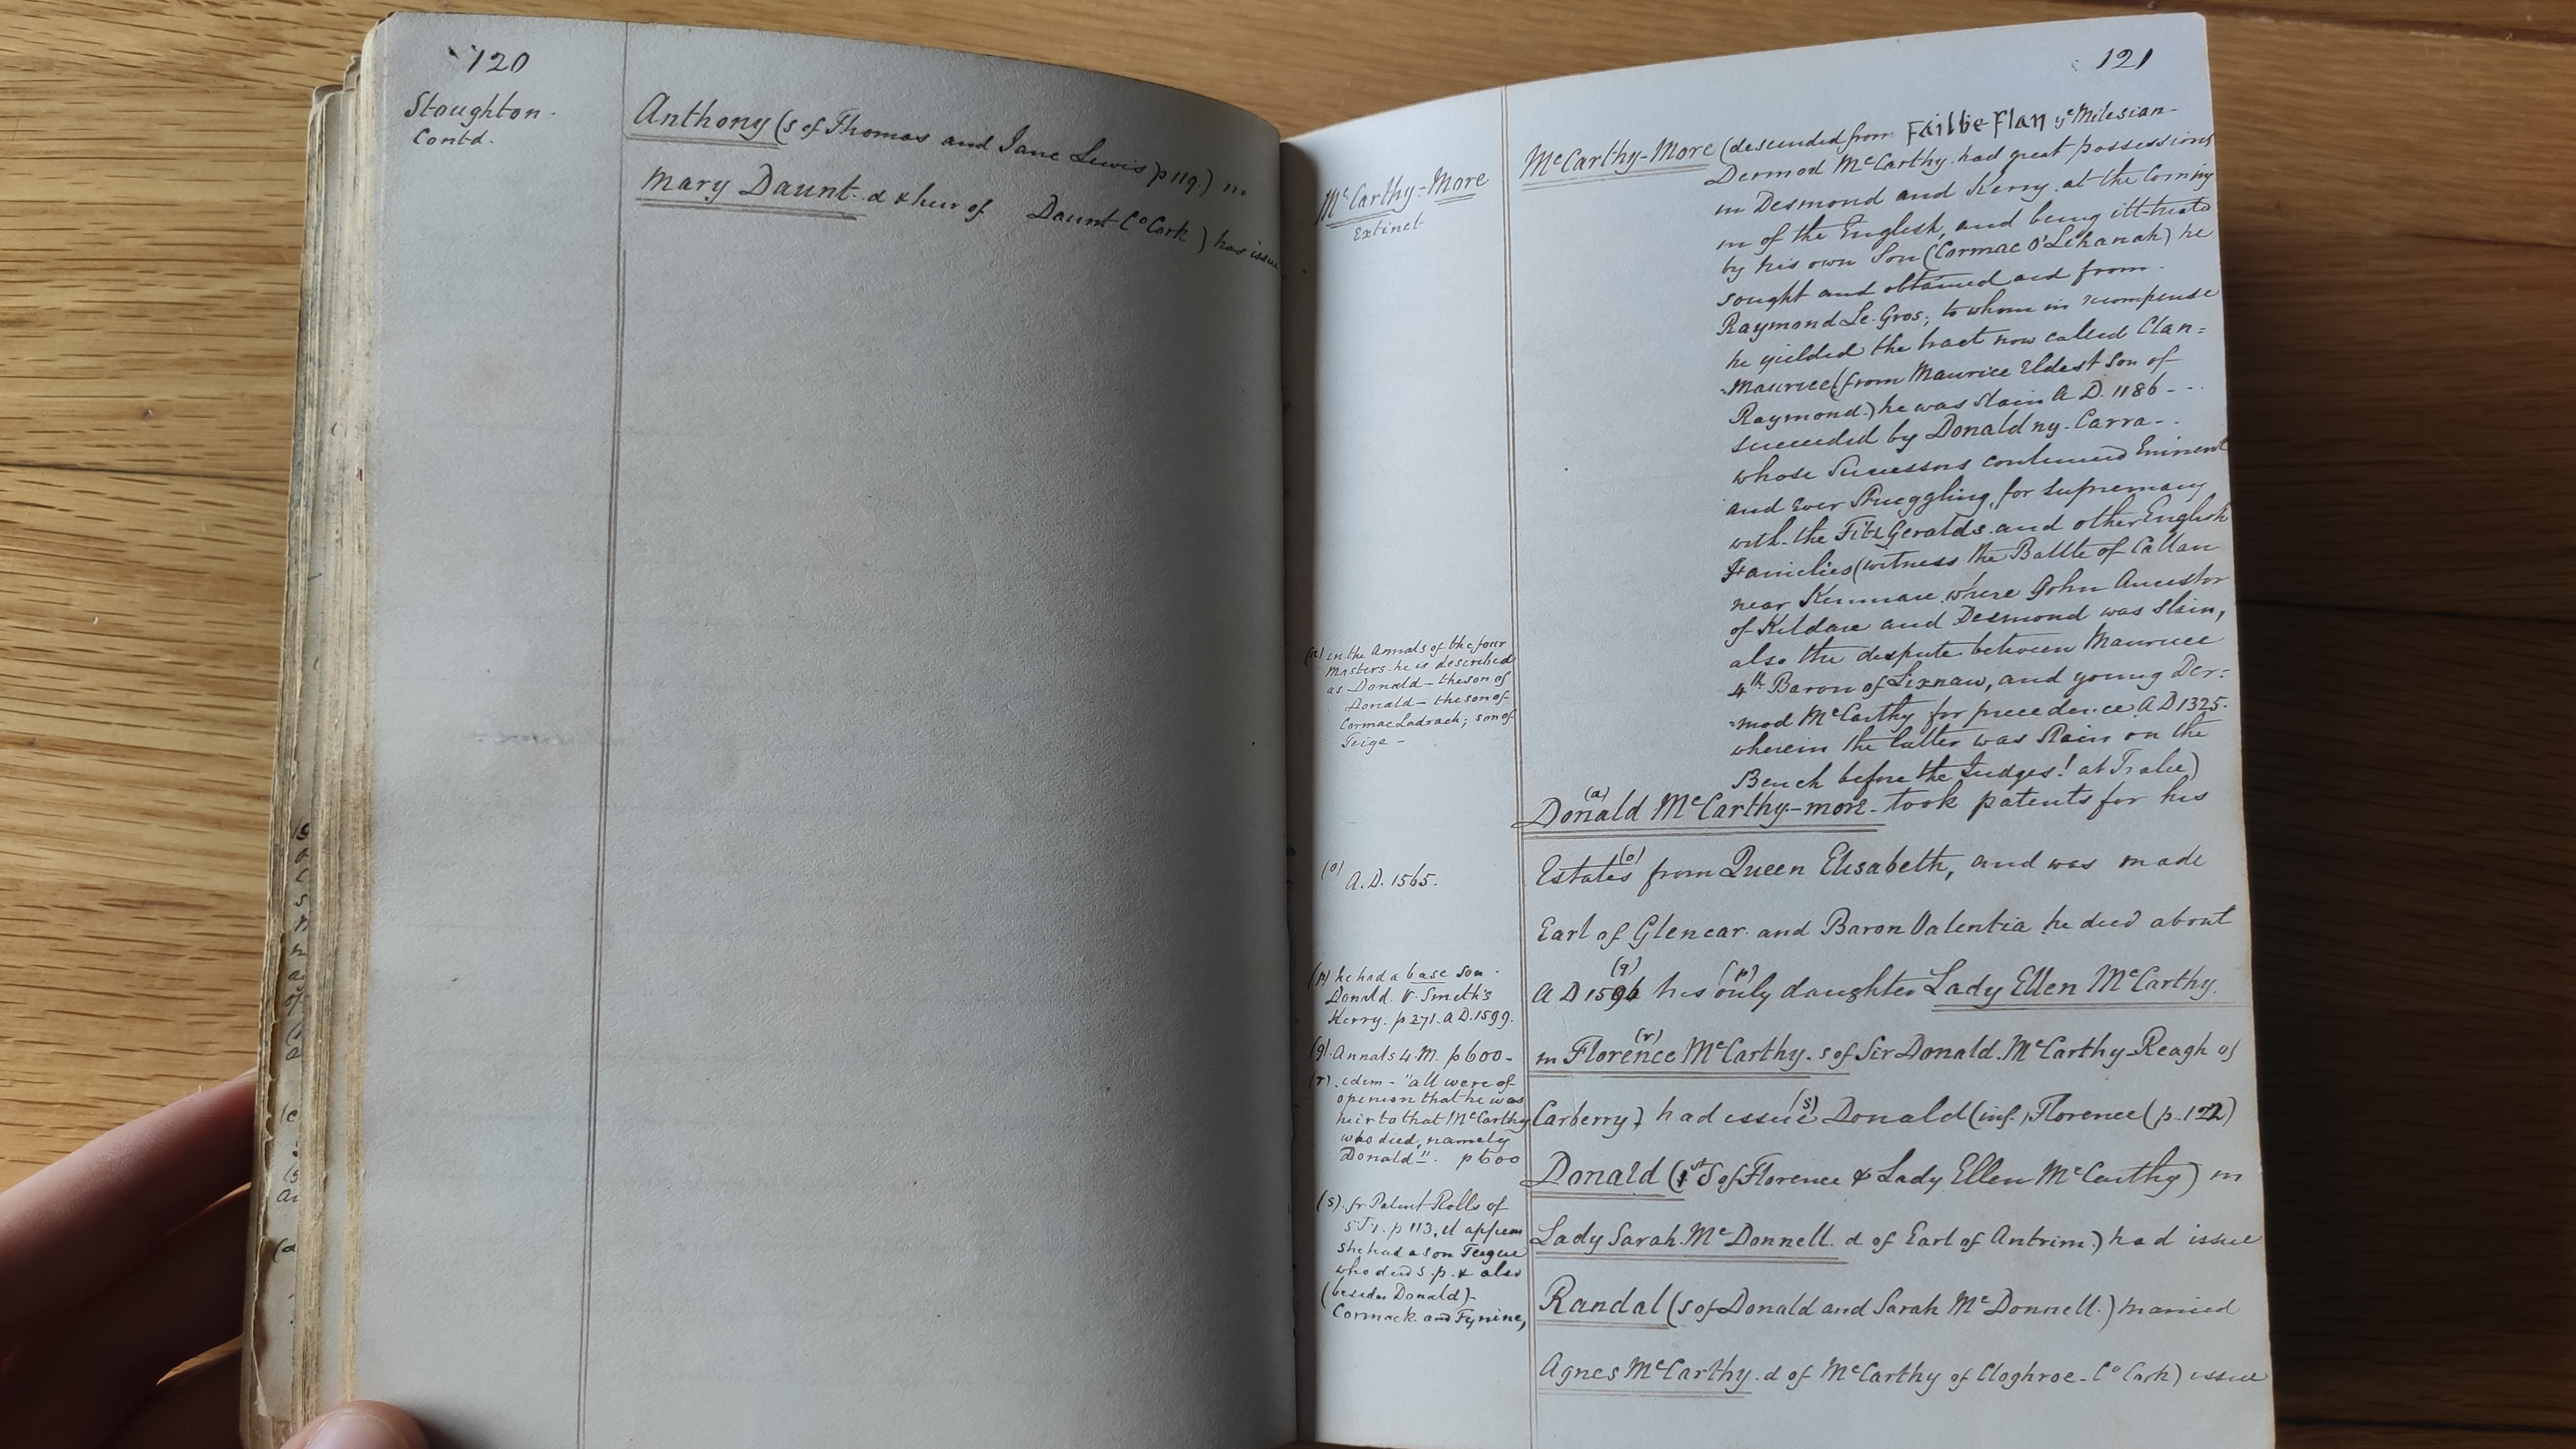 120
Stoughton.
Contd.
Anthony (s of Thomas and Jane Lewis p 119.) m.
Mary Daunt. d & heir of Daunt Co Cork) has issue
121
McCarthy-More
Extinct
McCarthy-More (descended from Failbe Flan ye Milesian-
Dermod McCarthy had great possessions
in Desmond and Kerry at the Coming
in of the English, and being ill-treated
by his own Son (Cormac O'Lehanah) he
sought and obtained aid from.
Raymond Le-Gros; to whom in recompense
he yielded the tract now called Clan=
=Maurice (from Maurice Eldest Son of
Raymond.) he was slain A.D. 1186 - - -
succeeded by Donald ny-Carra-.
whose Successors continued Eminent
and Ever Struggling for supremacy
with the FitzGeralds and other English
Families (witness the Battle of Callan
near Kenmare where John Ancestor
of Kildare and Desmond was slain,
also the dispute between Maurice
4th Baron of Lixnaw, and young Der=
=mod McCarthy for precedence A D 1325.
wherein the latter was slain on the
Bench before the Judges! at Tralee)
(a) in the Annals of the four
Masters he is described
as Donald - the son of
Donald - the son of
Cormac Ladrach; son of
Teige -
(a)
Donald McCarthy-more - took patents for his
(o) A.D. 1565.
(o)
Estates from Queen Elisabeth, and was made
Earl of Glencar and Baron Valentia he died about
(p) he had a base son.
Donald V. Smith's
Kerry. p 271. A D. 1599.
(q) (p)
A D 1596 his only daughter Lady Ellen McCarthy.
(q). Annals 4. M. p 600-
(r). idem - "all were of
opinion that he was
heir to that McCarthy
who died, namely
Donald". p 600
(r)
m Florence McCarthy. s of Sir Donald McCarthy-Reagh of
(s)
Carberry) had issue Donald (inf.) Florence (p. 122)
Donald (1st S of Florence & Lady Ellen McCarthy) m
(s). fr Patent Rolls of
5 J 1. p 113, it appears
she had a son Teigue
who died s.p. & also
(besides Donald)-
Cormack and Fynine,
Lady Sarah McDonnell. d of Earl of Antrim) had issue
Randal (s of Donald and Sarah McDonnell.) married
Agnes McCarthy. d of McCarthy of Cloghroe - Co Cork) issue